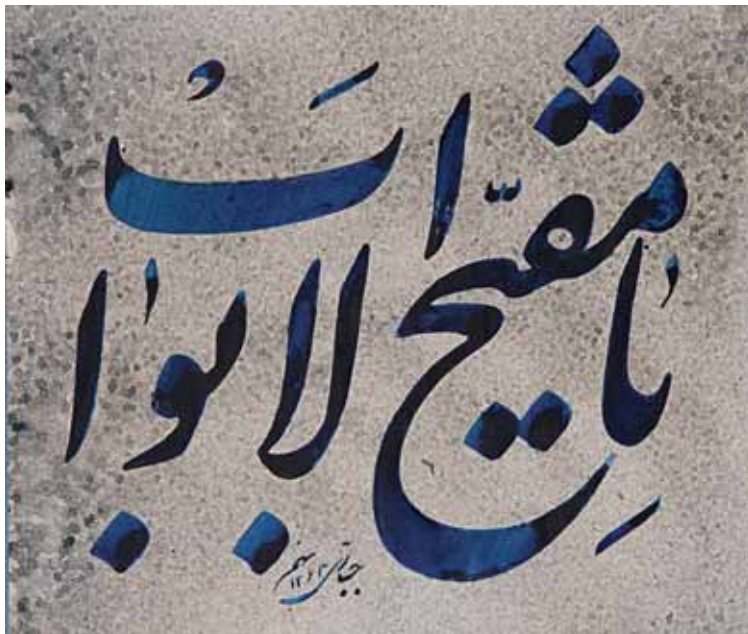 یا مفتّح الابواب